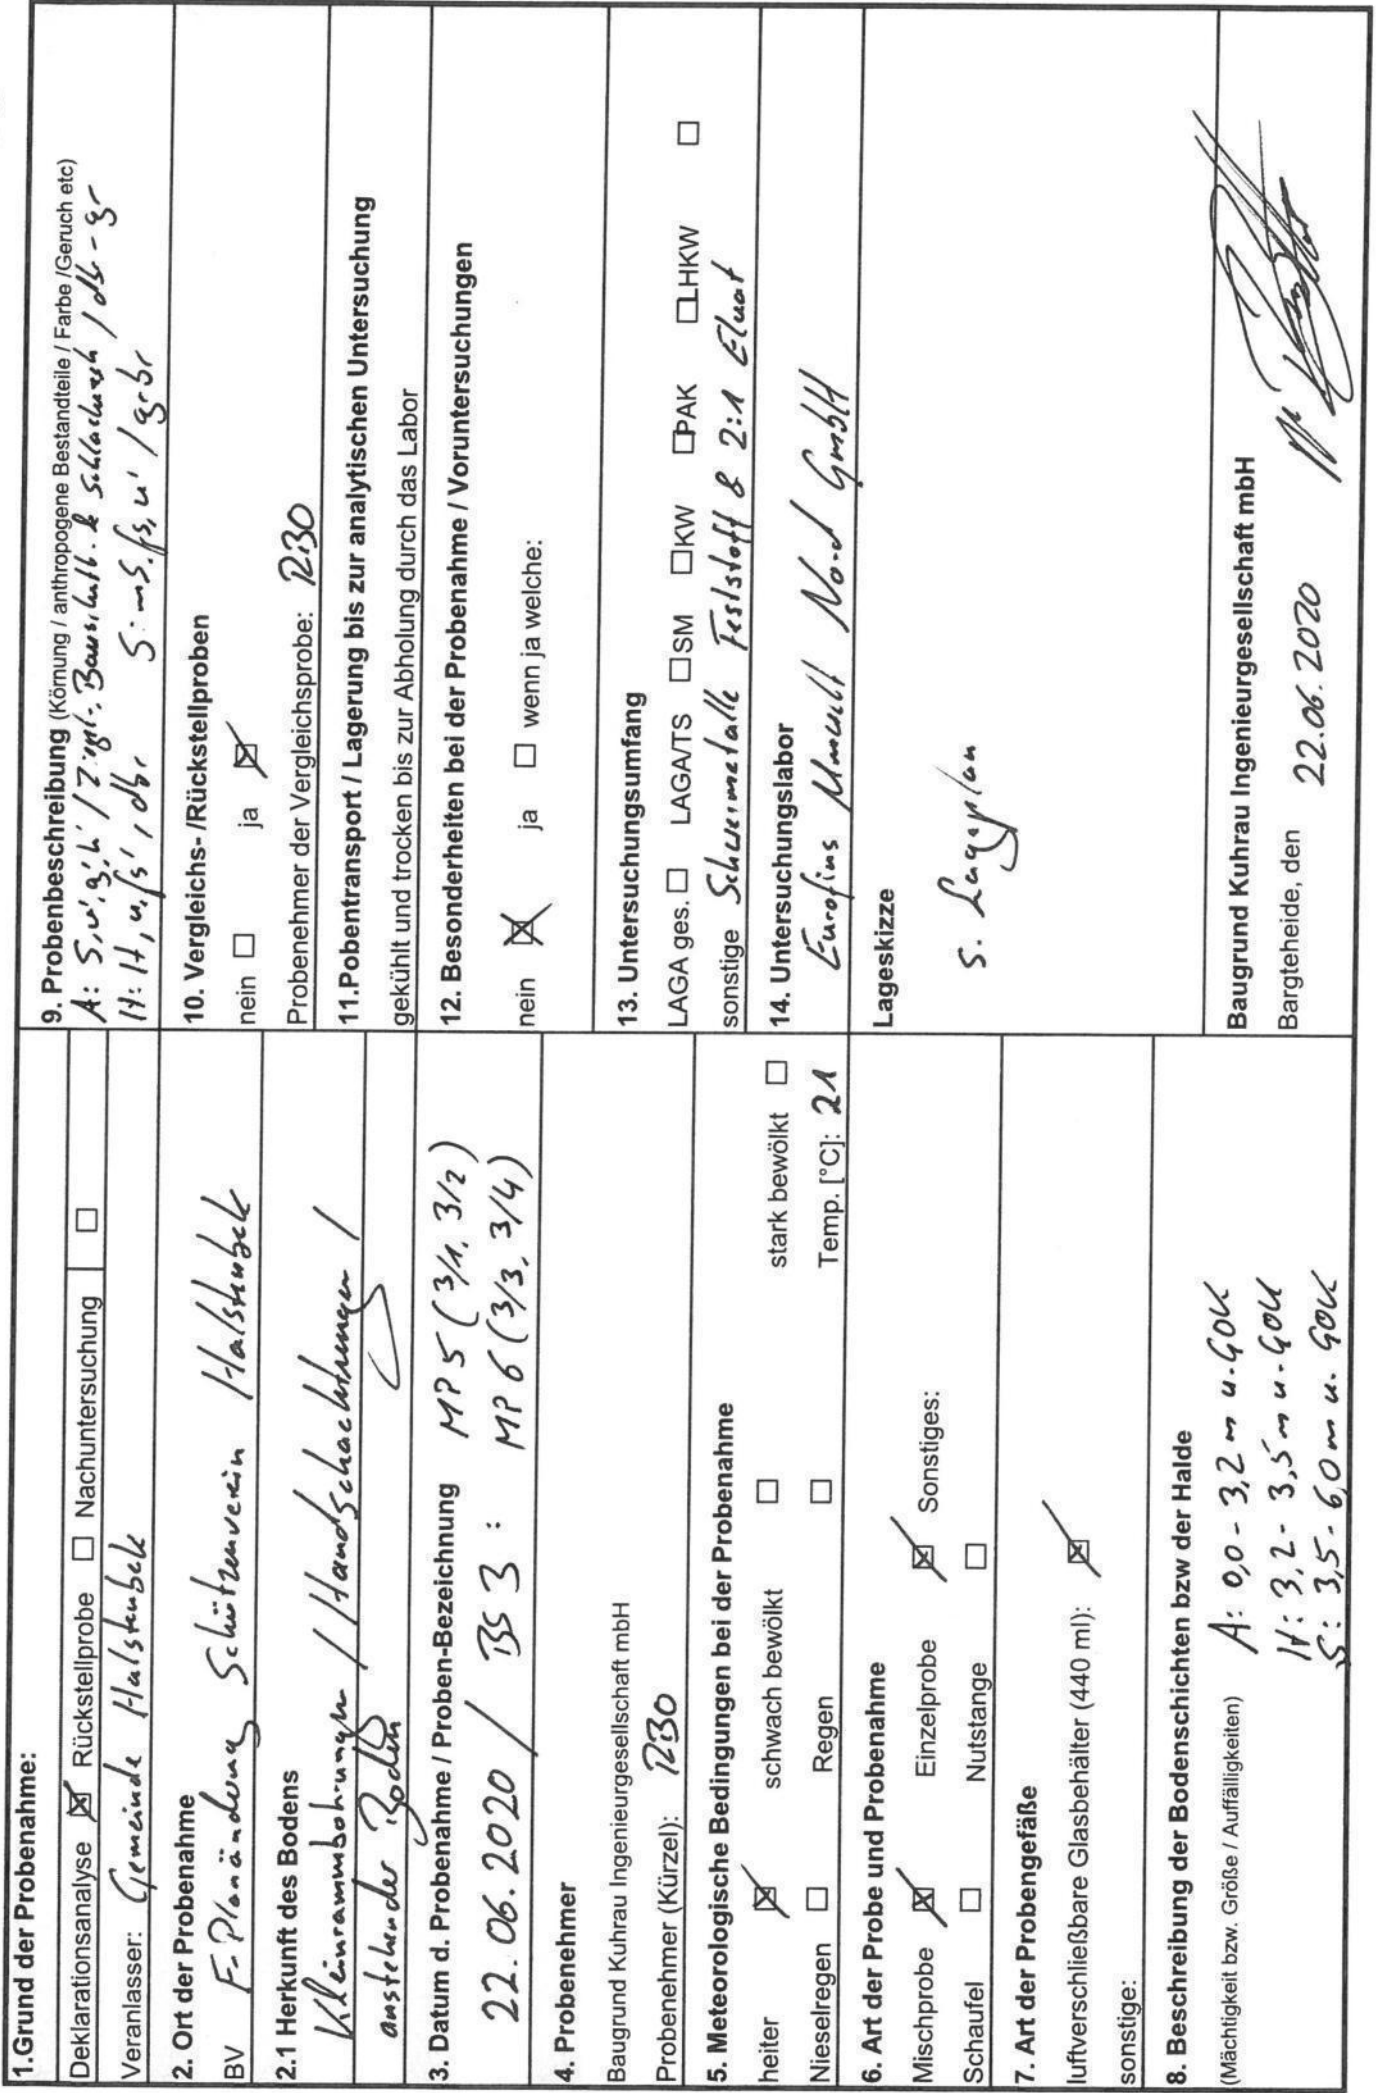 1.Grund der Probenahme:
Deklarationsanalyse ☒ Rückstellprobe ☐ Nachuntersuchung ☐
Veranlasser: Gemeinde Halstenbek
2. Ort der Probenahme
BV F-Planänderung Schützenverein Halstenbek
2.1 Herkunft des Bodens
Kleinrammbohrungen / Handschachtungen /
anstehender Boden
3. Datum d. Probenahme / Proben-Bezeichnung MP 5 (3/1, 3/2)
22.06.2020 / BS 3 : MP 6 (3/3, 3/4)
4. Probenehmer
Baugrund Kuhrau Ingenieurgesellschaft mbH
Probenehmer (Kürzel):
5. Meteorologische Bedingungen bei der Probenahme
heiter ☒ schwach bewölkt ☐ stark bewölkt ☐
Nieselregen ☐ Regen ☐ Temp. [°C]: 21
6. Art der Probe und Probenahme
Mischprobe ☒ Einzelprobe ☒ Sonstiges:
Schaufel ☐ Nutstange ☐
7. Art der Probengefäße
luftverschließbare Glasbehälter (440 ml): ☒
sonstige:
8. Beschreibung der Bodenschichten bzw der Halde
(Mächtigkeit bzw. Größe / Auffälligkeiten) A: 0,0 - 3,2 m u. GOK
H: 3,2 - 3,5 m u. GOK
S: 3,5 - 6,0 m u. GOK
9. Probenbeschreibung (Körnung / anthropogene Bestandteile / Farbe /Geruch etc)
A: S, u', g', h' / Ziegel-, Bauschutt- & Schlacke / dbr - gr
H: H, u, fs', dbr S: mS, fs, u' / grbr
10. Vergleichs- /Rückstellproben
nein ☐ ja ☒
Probenehmer der Vergleichsprobe:
11.Pobentransport / Lagerung bis zur analytischen Untersuchung
gekühlt und trocken bis zur Abholung durch das Labor
12. Besonderheiten bei der Probenahme / Voruntersuchungen
nein ☒ ja ☐ wenn ja welche:
13. Untersuchungsumfang
LAGA ges. ☐ LAGA/TS ☐ SM ☐ KW ☐ PAK ☐ LHKW ☐
sonstige Schwermetalle Feststoff & 2:1 Eluat
14. Untersuchungslabor
Eurofins Umwelt Nord GmbH
Lageskizze
s. Lageplan
Baugrund Kuhrau Ingenieurgesellschaft mbH
Bargteheide, den 22.06.2020